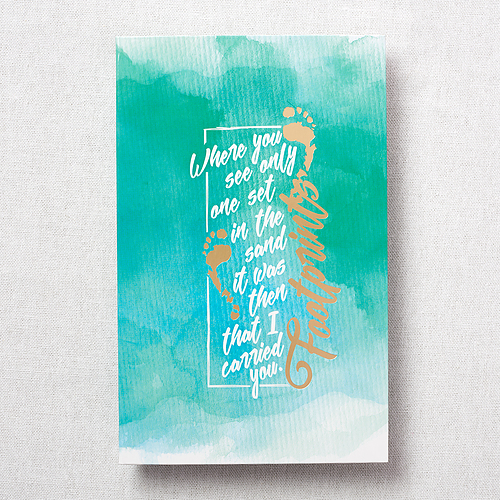 Where you
see only
one set
in the
sand
it was
then
that I
carried
you.
Footprints